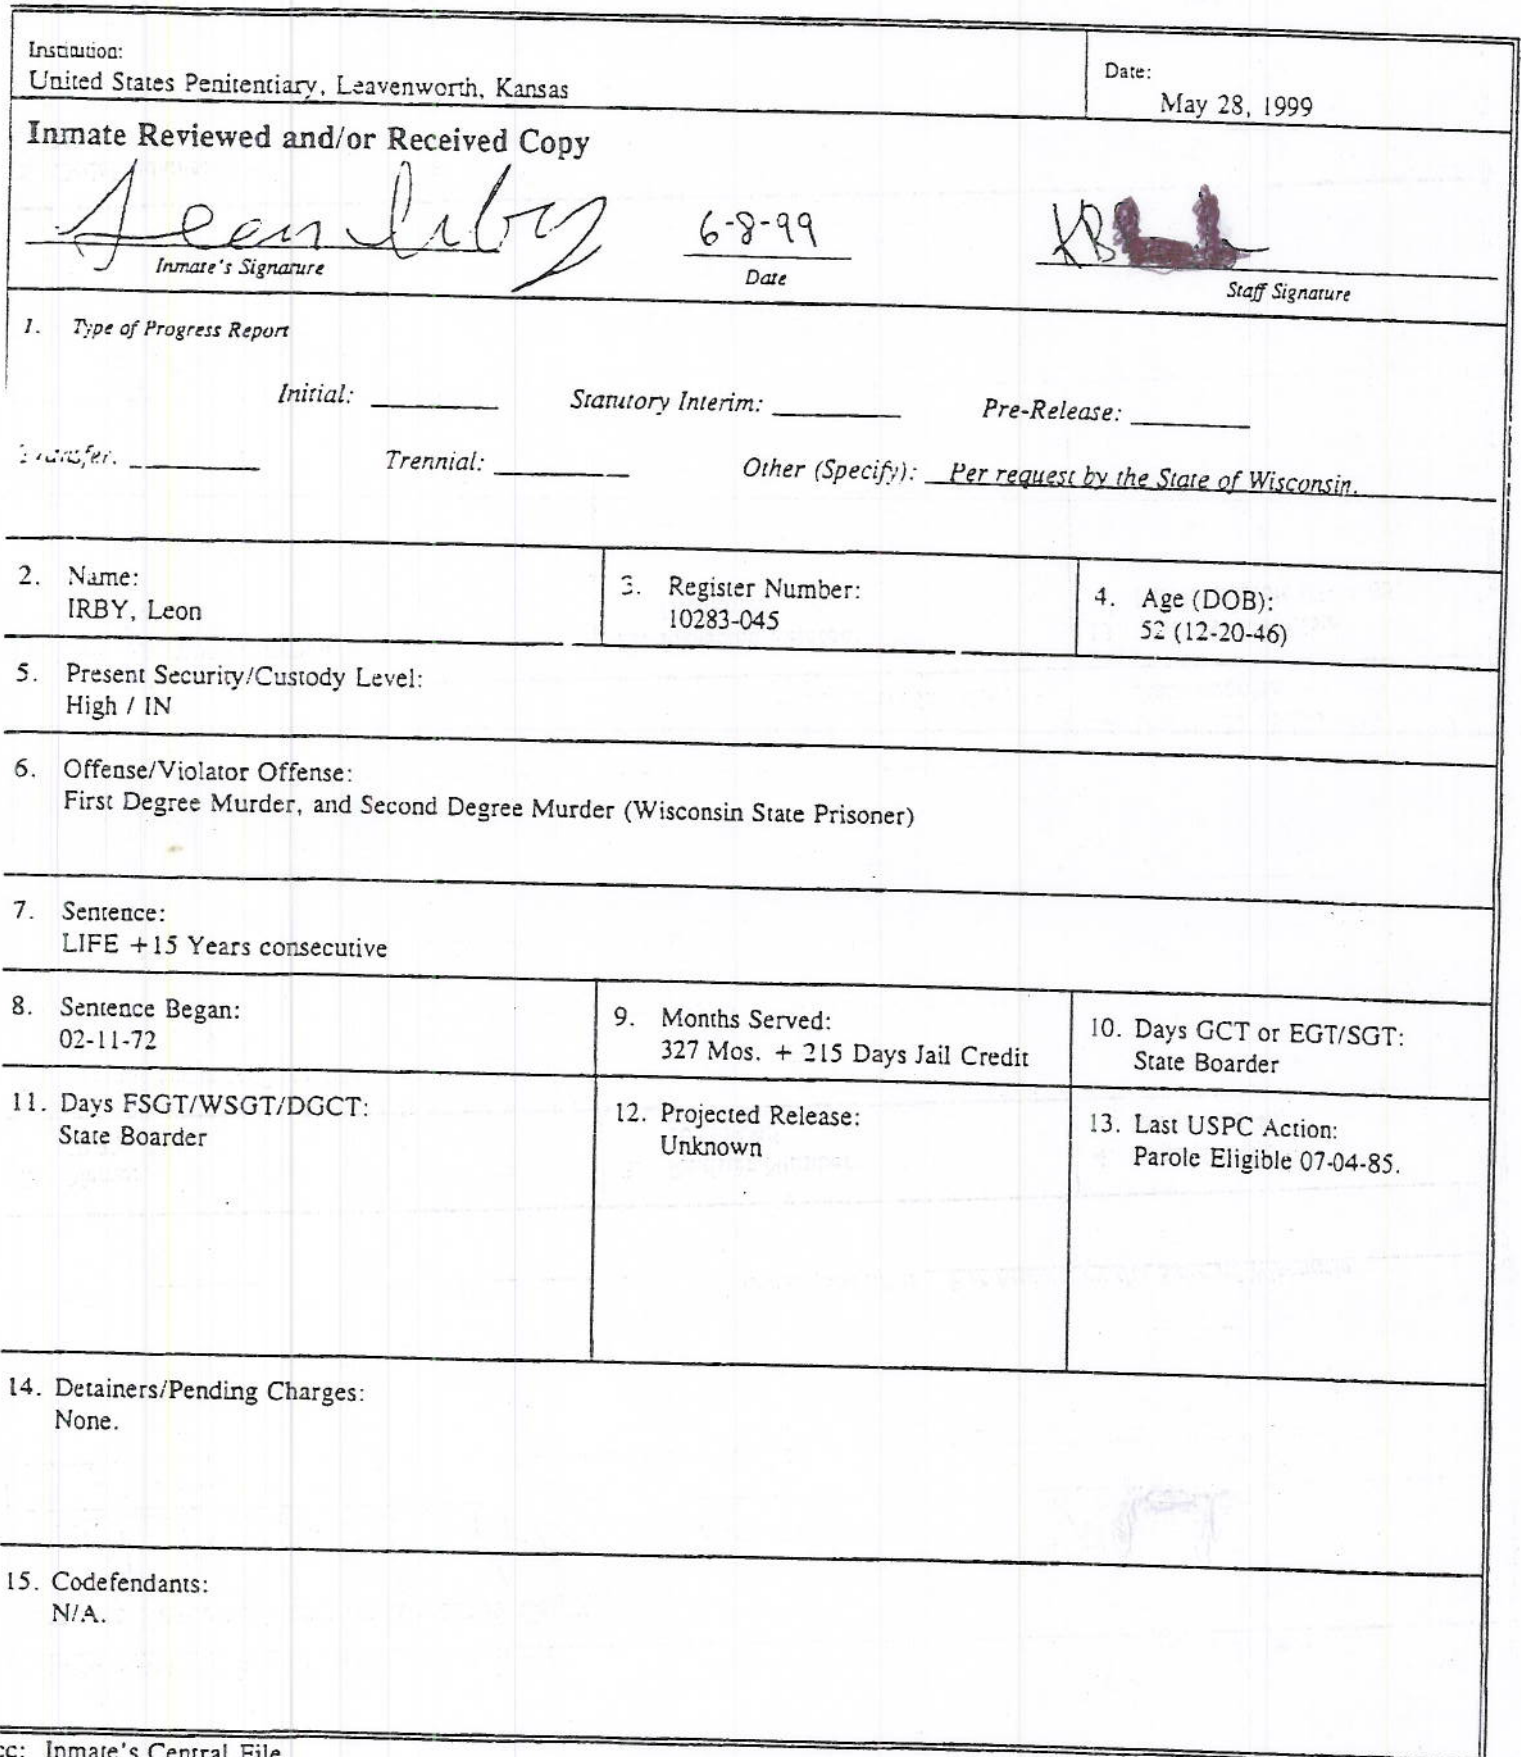 Institution:
United States Penitentiary, Leavenworth, Kansas
Date:
May 28, 1999
Inmate Reviewed and/or Received Copy
Leon Irby
6-8-99
Inmate's Signature
Date
Staff Signature
1. Type of Progress Report
Initial: Statutory Interim: Pre-Release:
Transfer: Trennial: Other (Specify): Per request by the State of Wisconsin.
2. Name:
IRBY, Leon
3. Register Number:
10283-045
4. Age (DOB):
52 (12-20-46)
5. Present Security/Custody Level:
High / IN
6. Offense/Violator Offense:
First Degree Murder, and Second Degree Murder (Wisconsin State Prisoner)
7. Sentence:
LIFE +15 Years consecutive
8. Sentence Began:
02-11-72
9. Months Served:
327 Mos. + 215 Days Jail Credit
10. Days GCT or EGT/SGT:
State Boarder
11. Days FSGT/WSGT/DGCT:
State Boarder
12. Projected Release:
Unknown
13. Last USPC Action:
Parole Eligible 07-04-85.
14. Detainers/Pending Charges:
None.
15. Codefendants:
N/A.
cc: Inmate's Central File